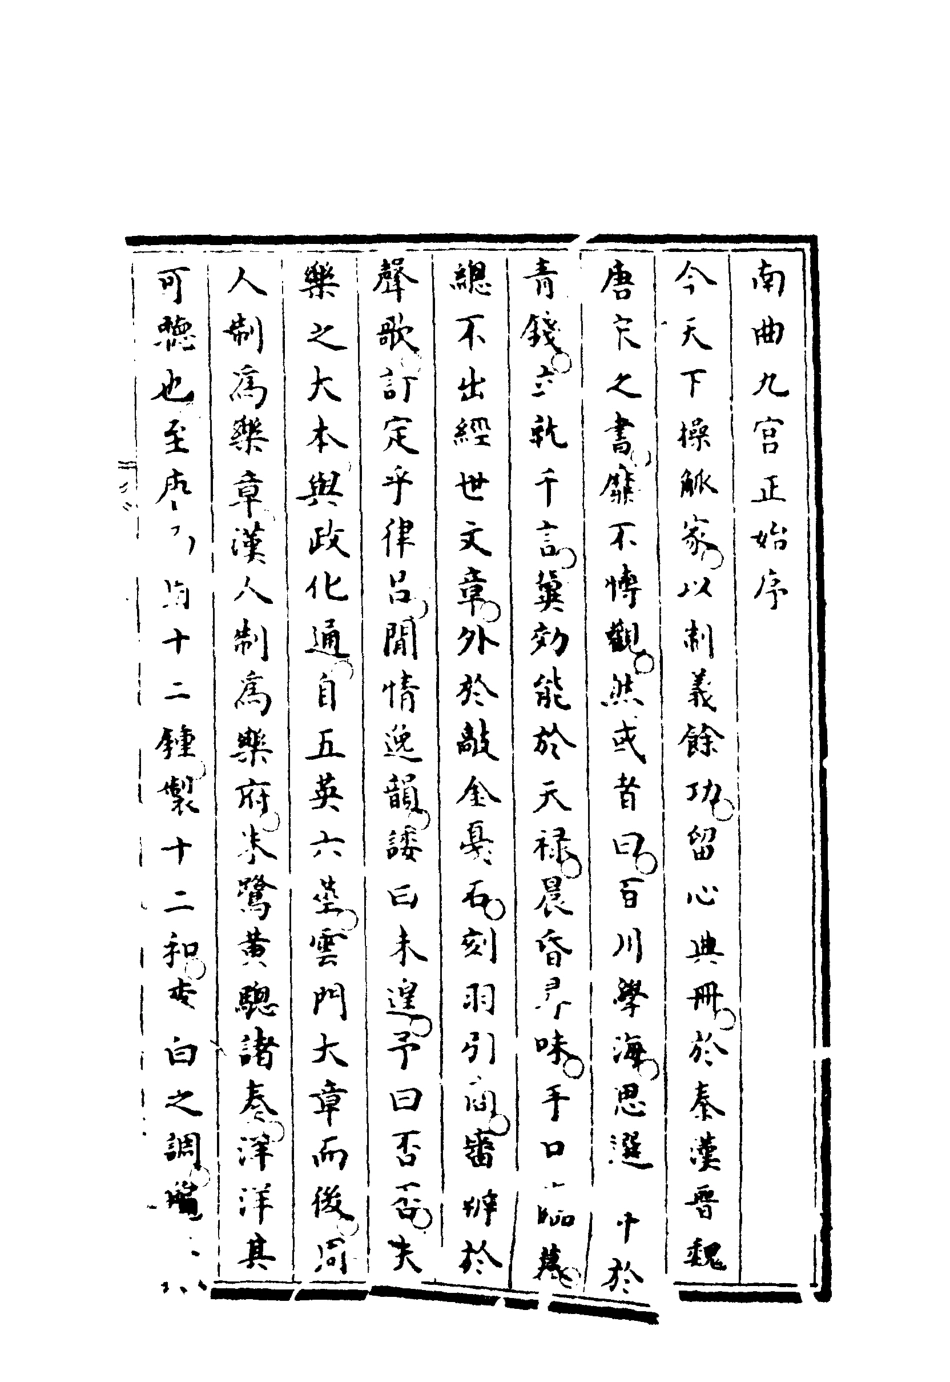 南曲九宮正始序
今天下操觚家以制義餘功留心典冊於秦漢晉魏
唐宋之書靡不博觀然或者曰百川學海思選 中於
青錢立就千言冀効能於天祿晨昏尋味手口臨摹
總不出經世文章外於敲金戞石刻羽引商審辨於
聲歌訂定乎律呂閒情逸韻諉曰未遑予曰否否夫
樂之大本與政化通自五英六莖雲門大章而後周
人制為樂章漢人制為樂府朱鷺黃驄諸奏洋洋其
可聽也至 十二鍾製十二和 白之調